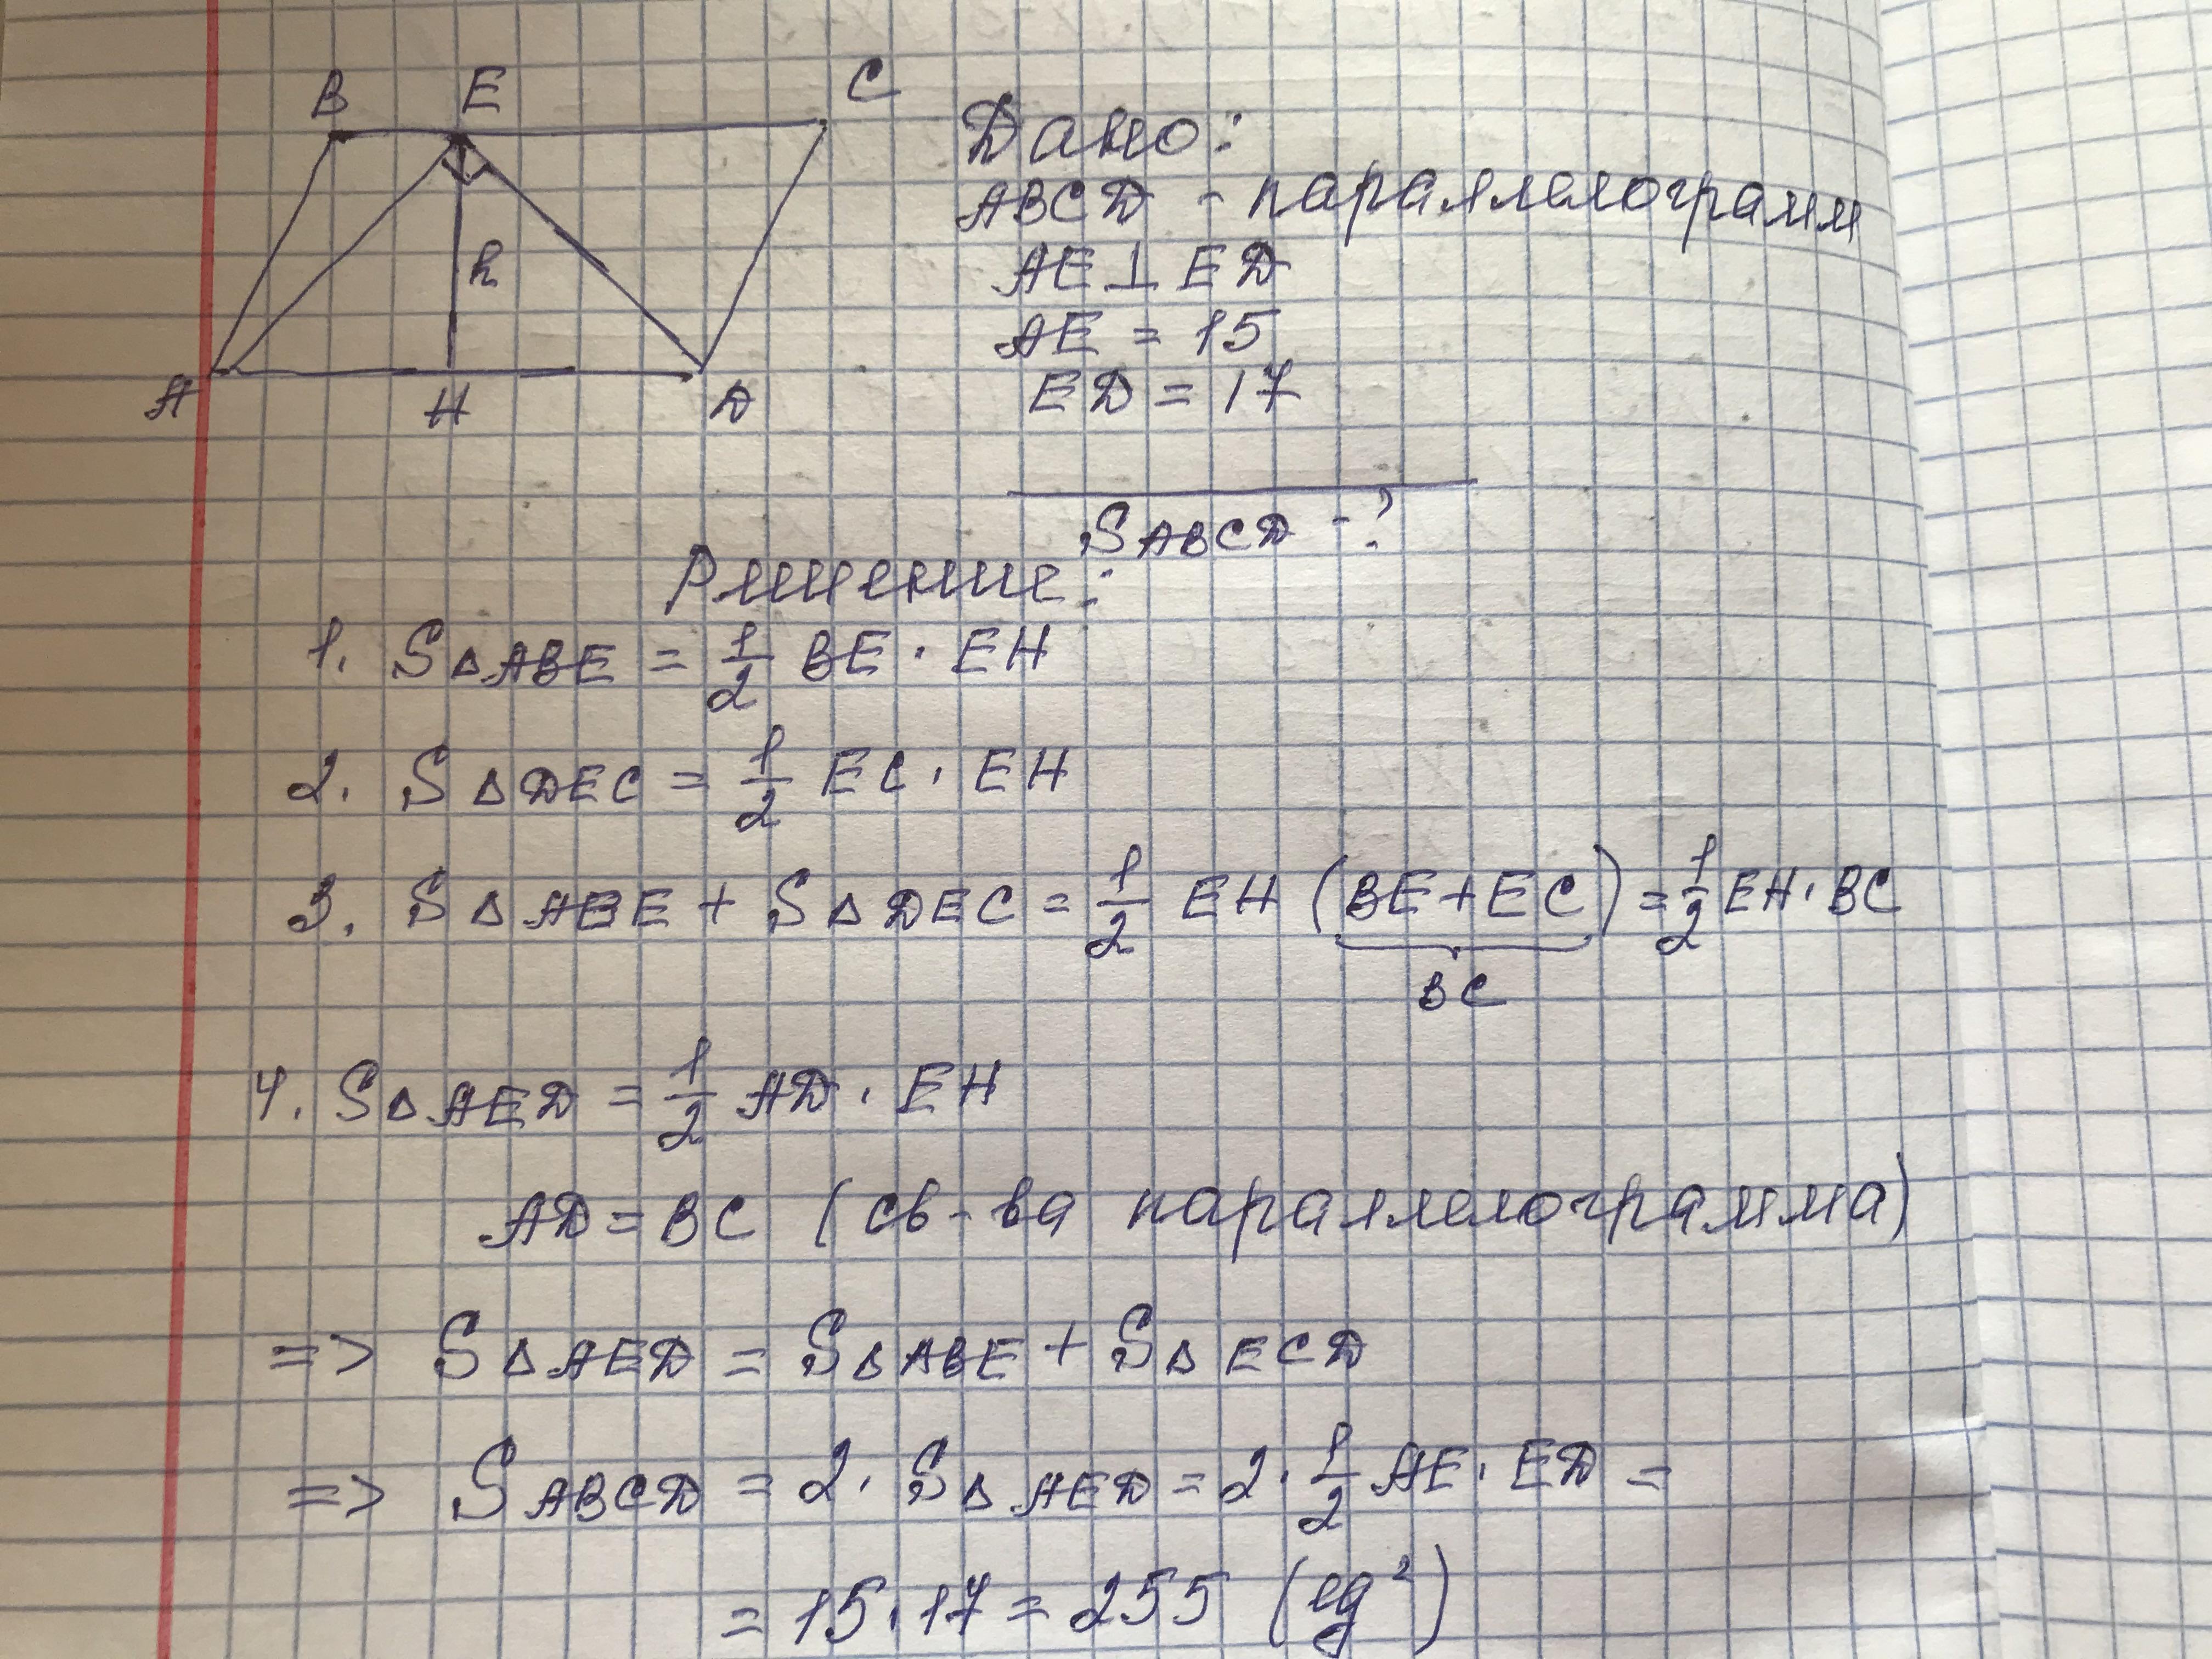 B E C
h
A H D
Дано:
ABCD - параллелограмм
AE ⊥ ED
AE = 15
ED = 17
S ABCD - ?
Решение:
1. S△ABE = 1/2 BE · EH
2. S△DEC = 1/2 EC · EH
3. S△ABE + S△DEC = 1/2 EH (BE+EC) = 1/2 EH · BC
BC
4. S△AED = 1/2 AD · EH
AD = BC (св-ва параллелограмма)
=> S△AED = S△ABE + S△ECD
=> S ABCD = 2 · S△AED = 2 · 1/2 AE · ED =
= 15 · 17 = 255 (ед²)